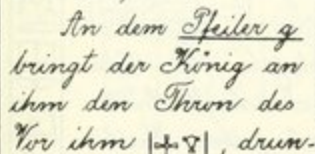 An dem Pfeiler g
bringt der König an
ihm den Thron des
Vor ihm , drun-